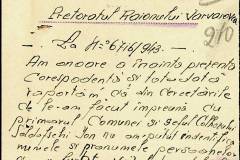 Pretoratul Raionului Varvarovca
210
- La No 6716/943. -
Am onoare a înainta prezenta
corespondență și totodată
raportăm că din cercetările
ce le-am făcut împreună cu
primarul Comunei și șeful
Ion nu am putut identifica
numele și pronumele persoanelor